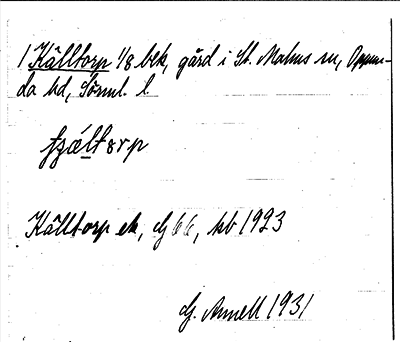 1 Källtorp 1/8 bek, gård i St. Malms sn, Oppun-
da hd, Sörml. l
Källtorp ek, dj 66, kb 1923
Arnell 1931